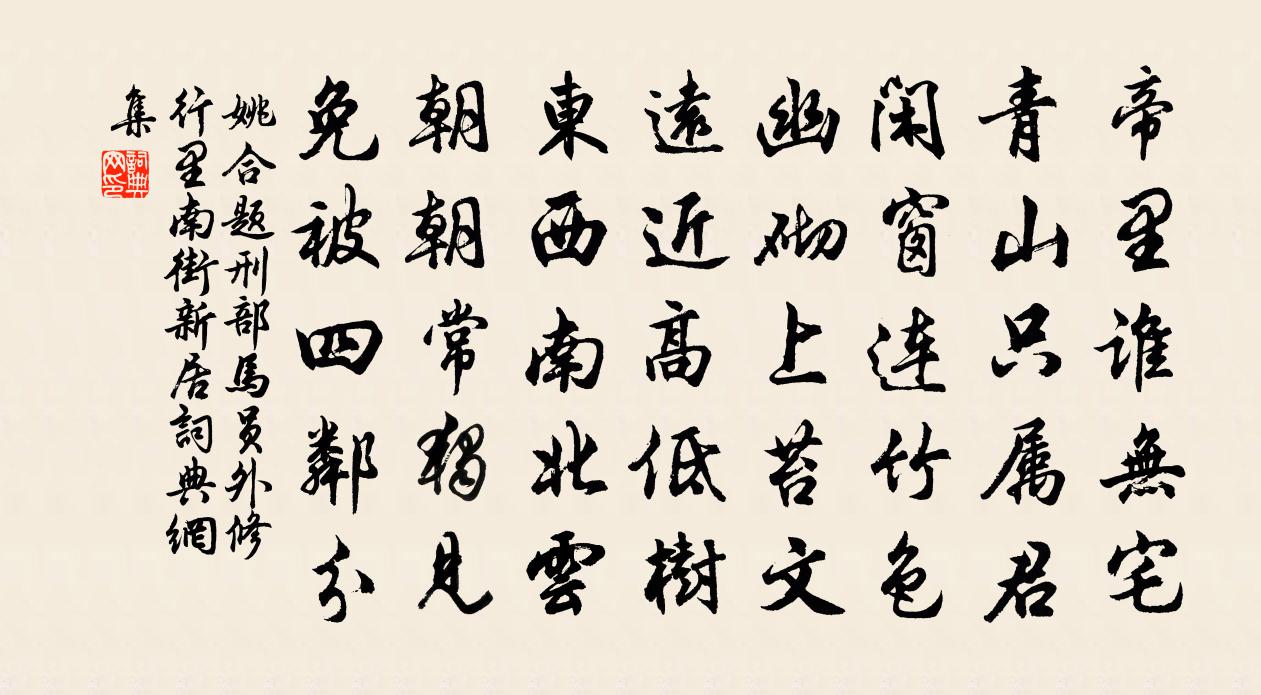 帝里誰無宅
青山只属君
閑窗连竹色
幽砌上苔文
遠近高低樹
東西南北雲
朝朝常獨見
免被四鄰分
姚合题刑部馬员外修
行里南街新居詞典網
集
詞典網印